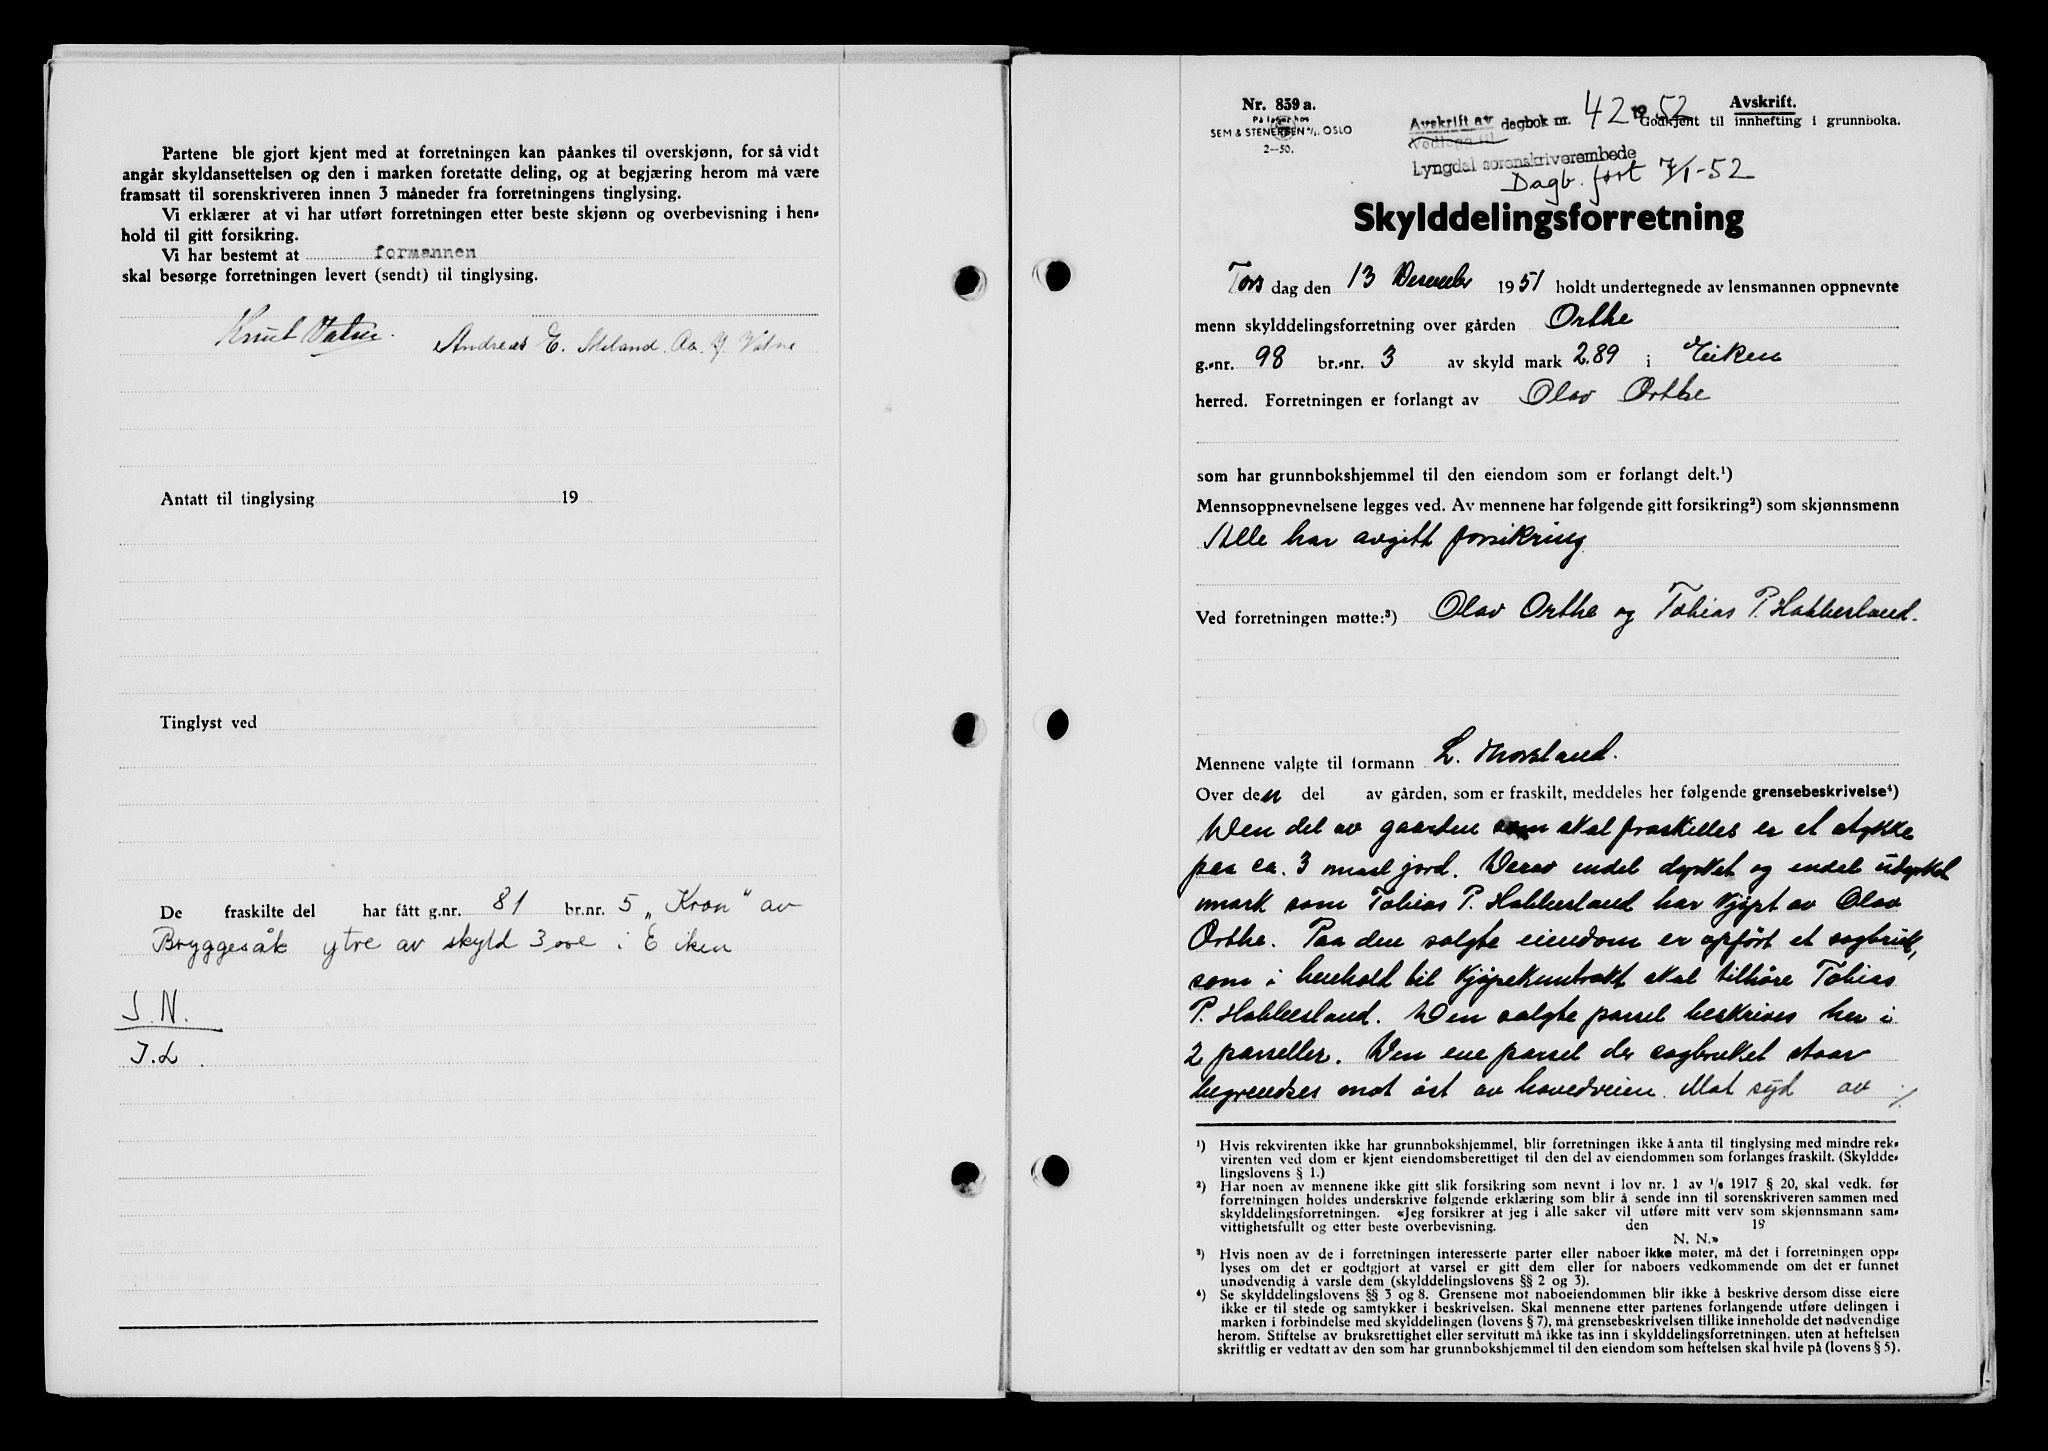 Partene ble gjort kjent med at forretningen kan påankes til overskjønn, for så vidt
angår skyldansettelsen og den i marken foretatte deling, og at begjæring herom må være
framsatt til sorenskriveren innen 3 måneder fra forretningens tinglysing.
Vi erklærer at vi har utført forretningen etter beste skjønn og overbevisning i hen-
hold til gitt forsikring.
Vi har bestemt at formannen
skal besørge forretningen levert (sendt) til tinglysing.
Knut Vatne. Andreas E. Meland. Aa. Y. Vatne
Antatt til tinglysing 19
Tinglyst ved
De fraskilte del har fått g.nr. 81 br.nr. 5 „Kron" av
Bryggesåk ytre av skyld 3 øre i Eiken
S. N.
J. L.
Nr. 859 a.
På lager hos
SEM & STENERSEN A/S, OSLO
2—50.
Avskrift av dagbok nr. 42 1952
Vedlegg til
Lyngdal sorenskriverembede
Dagb. ført 7/1-52
Avskrift.
Godkjent til innhefting i grunnboka.
Skylddelingsforretning
Tors dag den 13 Desember 1951 holdt undertegnede av lensmannen oppnevnte
menn skylddelingsforretning over gården Orthe
g.-nr. 98 br.-nr. 3 av skyld mark 2.89 i Eiken
herred. Forretningen er forlangt av Olav Orthe
som har grunnbokshjemmel til den eiendom som er forlangt delt.¹)
Mennsoppnevnelsene legges ved. Av mennene har følgende gitt forsikring²) som skjønnsmenn
Alle har avgitt forsikring
Ved forretningen møtte:³) Olav Orthe og Tobias P. Habbesland.
Mennene valgte til formann L. Thorsland.
Over den del av gården, som er fraskilt, meddeles her følgende grensebeskrivelse⁴)
Den del av gaarden som skal fraskilles er et stykke
paa ca. 3 maal jord. Derav endel dyrket og endel udyrket
mark som Tobias P. Habbesland har kjøpt av Olav
Orthe. Paa den solgte eiendom er opført et sagbruk,
som i henhold til kjøpekontrakt skal tilhøre Tobias
P. Habbesland. Den solgte parsel beskrives her i
2 parseller. Den ene parsel der sagbruket staar
begrendses mot øst av hovedveien. Mot syd av ./.
¹) Hvis rekvirenten ikke har grunnbokshjemmel, blir forretningen ikke å anta til tinglysing med mindre rek-
virenten ved dom er kjent eiendomsberettiget til den del av eiendommen som forlanges fraskilt. (Skyldde-
lingslovens § 1.)
²) Har noen av mennene ikke gitt slik forsikring som nevnt i lov nr. 1 av 1/6 1917 § 20, skal vedk. før
forretningen holdes underskrive følgende erklæring som blir å sende inn til sorenskriveren sammen med
skylddelingsforretningen. «Jeg forsikrer at jeg i alle saker vil utføre mitt verv som skjønnsmann sam-
vittighetsfullt og etter beste overbevisning. den 19
N. N.»
³) Hvis noen av de i forretningen interesserte parter eller naboer ikke møter, må det i forretningen opp-
lyses om det er godtgjort at varsel er gitt dem eller for naboers vedkommende om det er funnet
unødvendig å varsle dem (skylddelingslovens §§ 2 og 3).
⁴) Se skylddelingslovens §§ 3 og 8. Grensene mot naboeiendommen blir ikke å beskrive dersom disse eiere
ikke er til stede og samtykker i beskrivelsen. Skal mennene etter partenes forlangende utføre delingen i
marken i forbindelse med skylddelingen (lovens § 7), må grensebeskrivelsen tillike inneholde det nødvendige
herom. Stiftelse av bruksrettighet eller servitutt må ikke tas inn i skylddelingsforretningen, uten at heftelsen
skriftlig er vedtatt av den som har grunnbokshjemmel til den eiendom som heftelsen skal hvile på (lovens § 5).